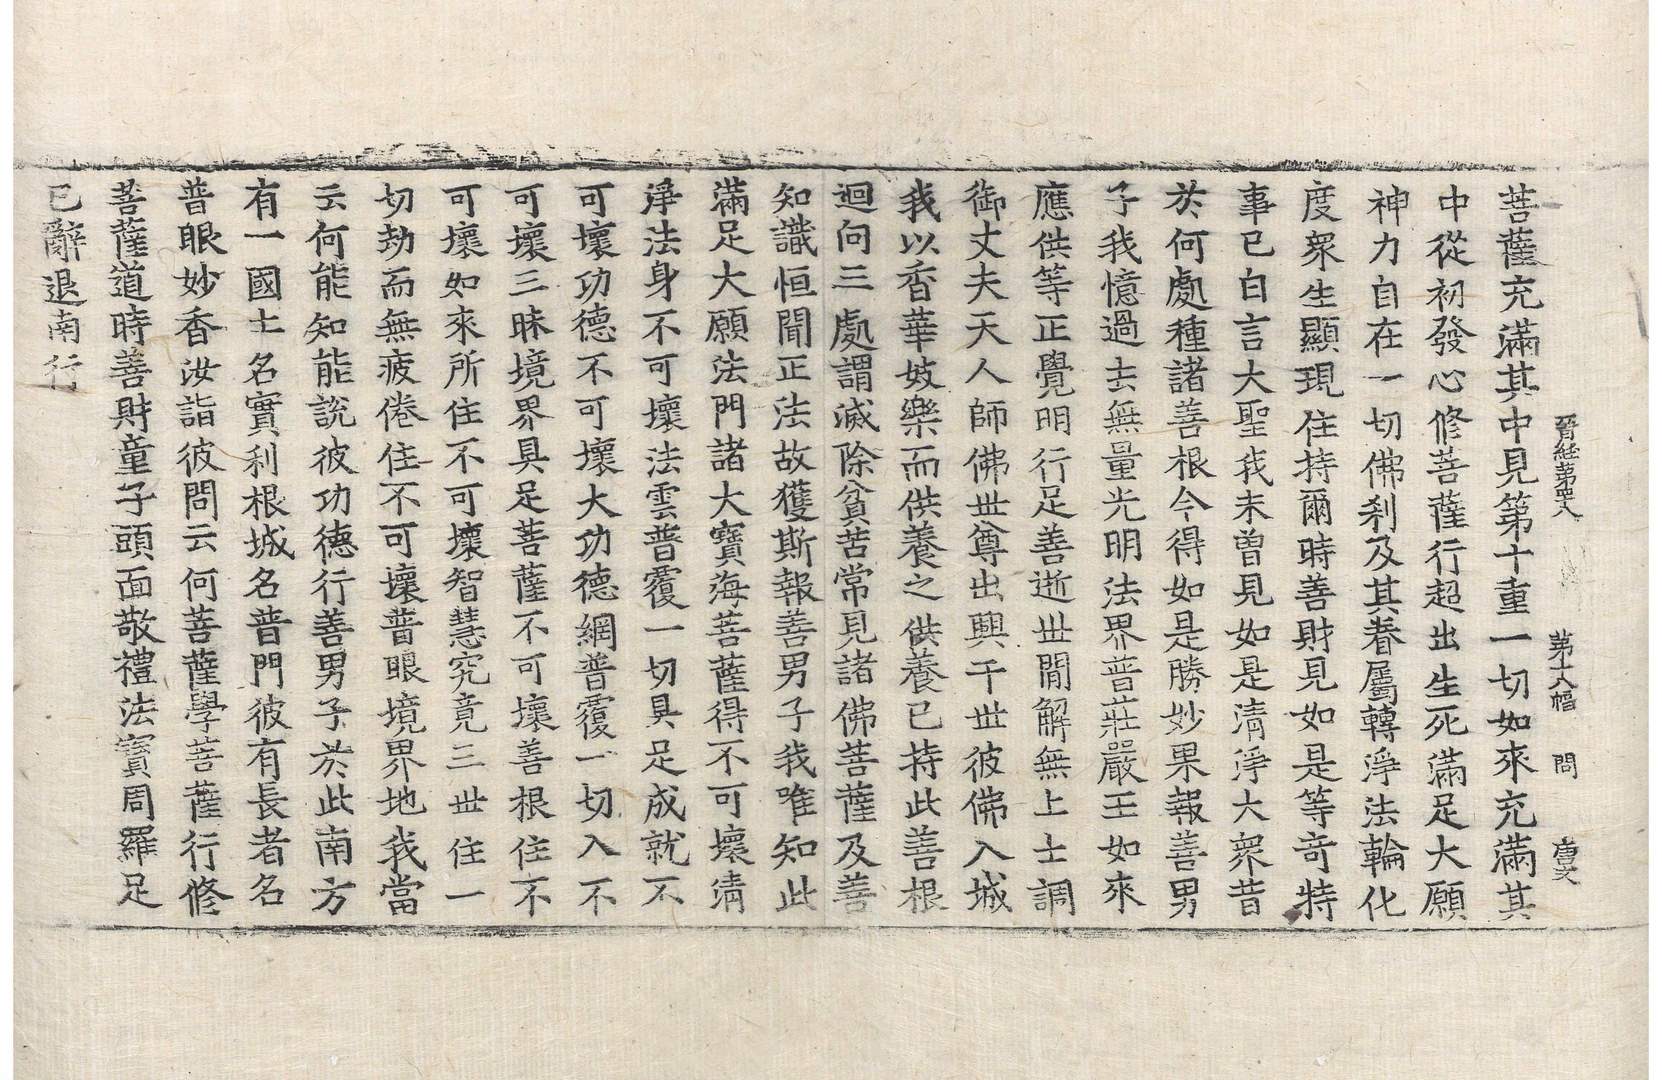 晉經第四八 第十八幅 問 唐文
菩薩充滿其中見第十重一切如來充滿其
中從初發心修菩薩行超出生死滿足大願
神力自在一切佛刹及其眷屬轉淨法輪化
度衆生顯現住持爾時善財見如是等奇特
事已白言大聖我未曾見如是清淨大衆昔
於何處種諸善根今得如是勝妙果報善男
子我憶過去無量光明法界普莊嚴王如來
應供等正覺明行足善逝世間解無上士調
御丈夫天人師佛世尊出興于世彼佛入城
我以香華妓樂而供養之供養已持此善根
迴向三處謂滅除貧苦常見諸佛菩薩及善
知識恒聞正法故獲斯報善男子我唯知此
滿足大願法門諸大寶海菩薩得不可壞清
淨法身不可壞法雲普覆一切具足成就不
可壞功德不可壞大功德網普覆一切入不
可壞三昧境界具足菩薩不可壞善根住不
可壞如來所住不可壞智慧究竟三世住一
切劫而無疲倦住不可壞普眼境界地我當
云何能知能說彼功德行善男子於此南方
有一國土名實利根城名普門彼有長者名
普眼妙香汝詣彼問云何菩薩學菩薩行修
菩薩道時善財童子頭面敬禮法寶周羅足
已辭退南行